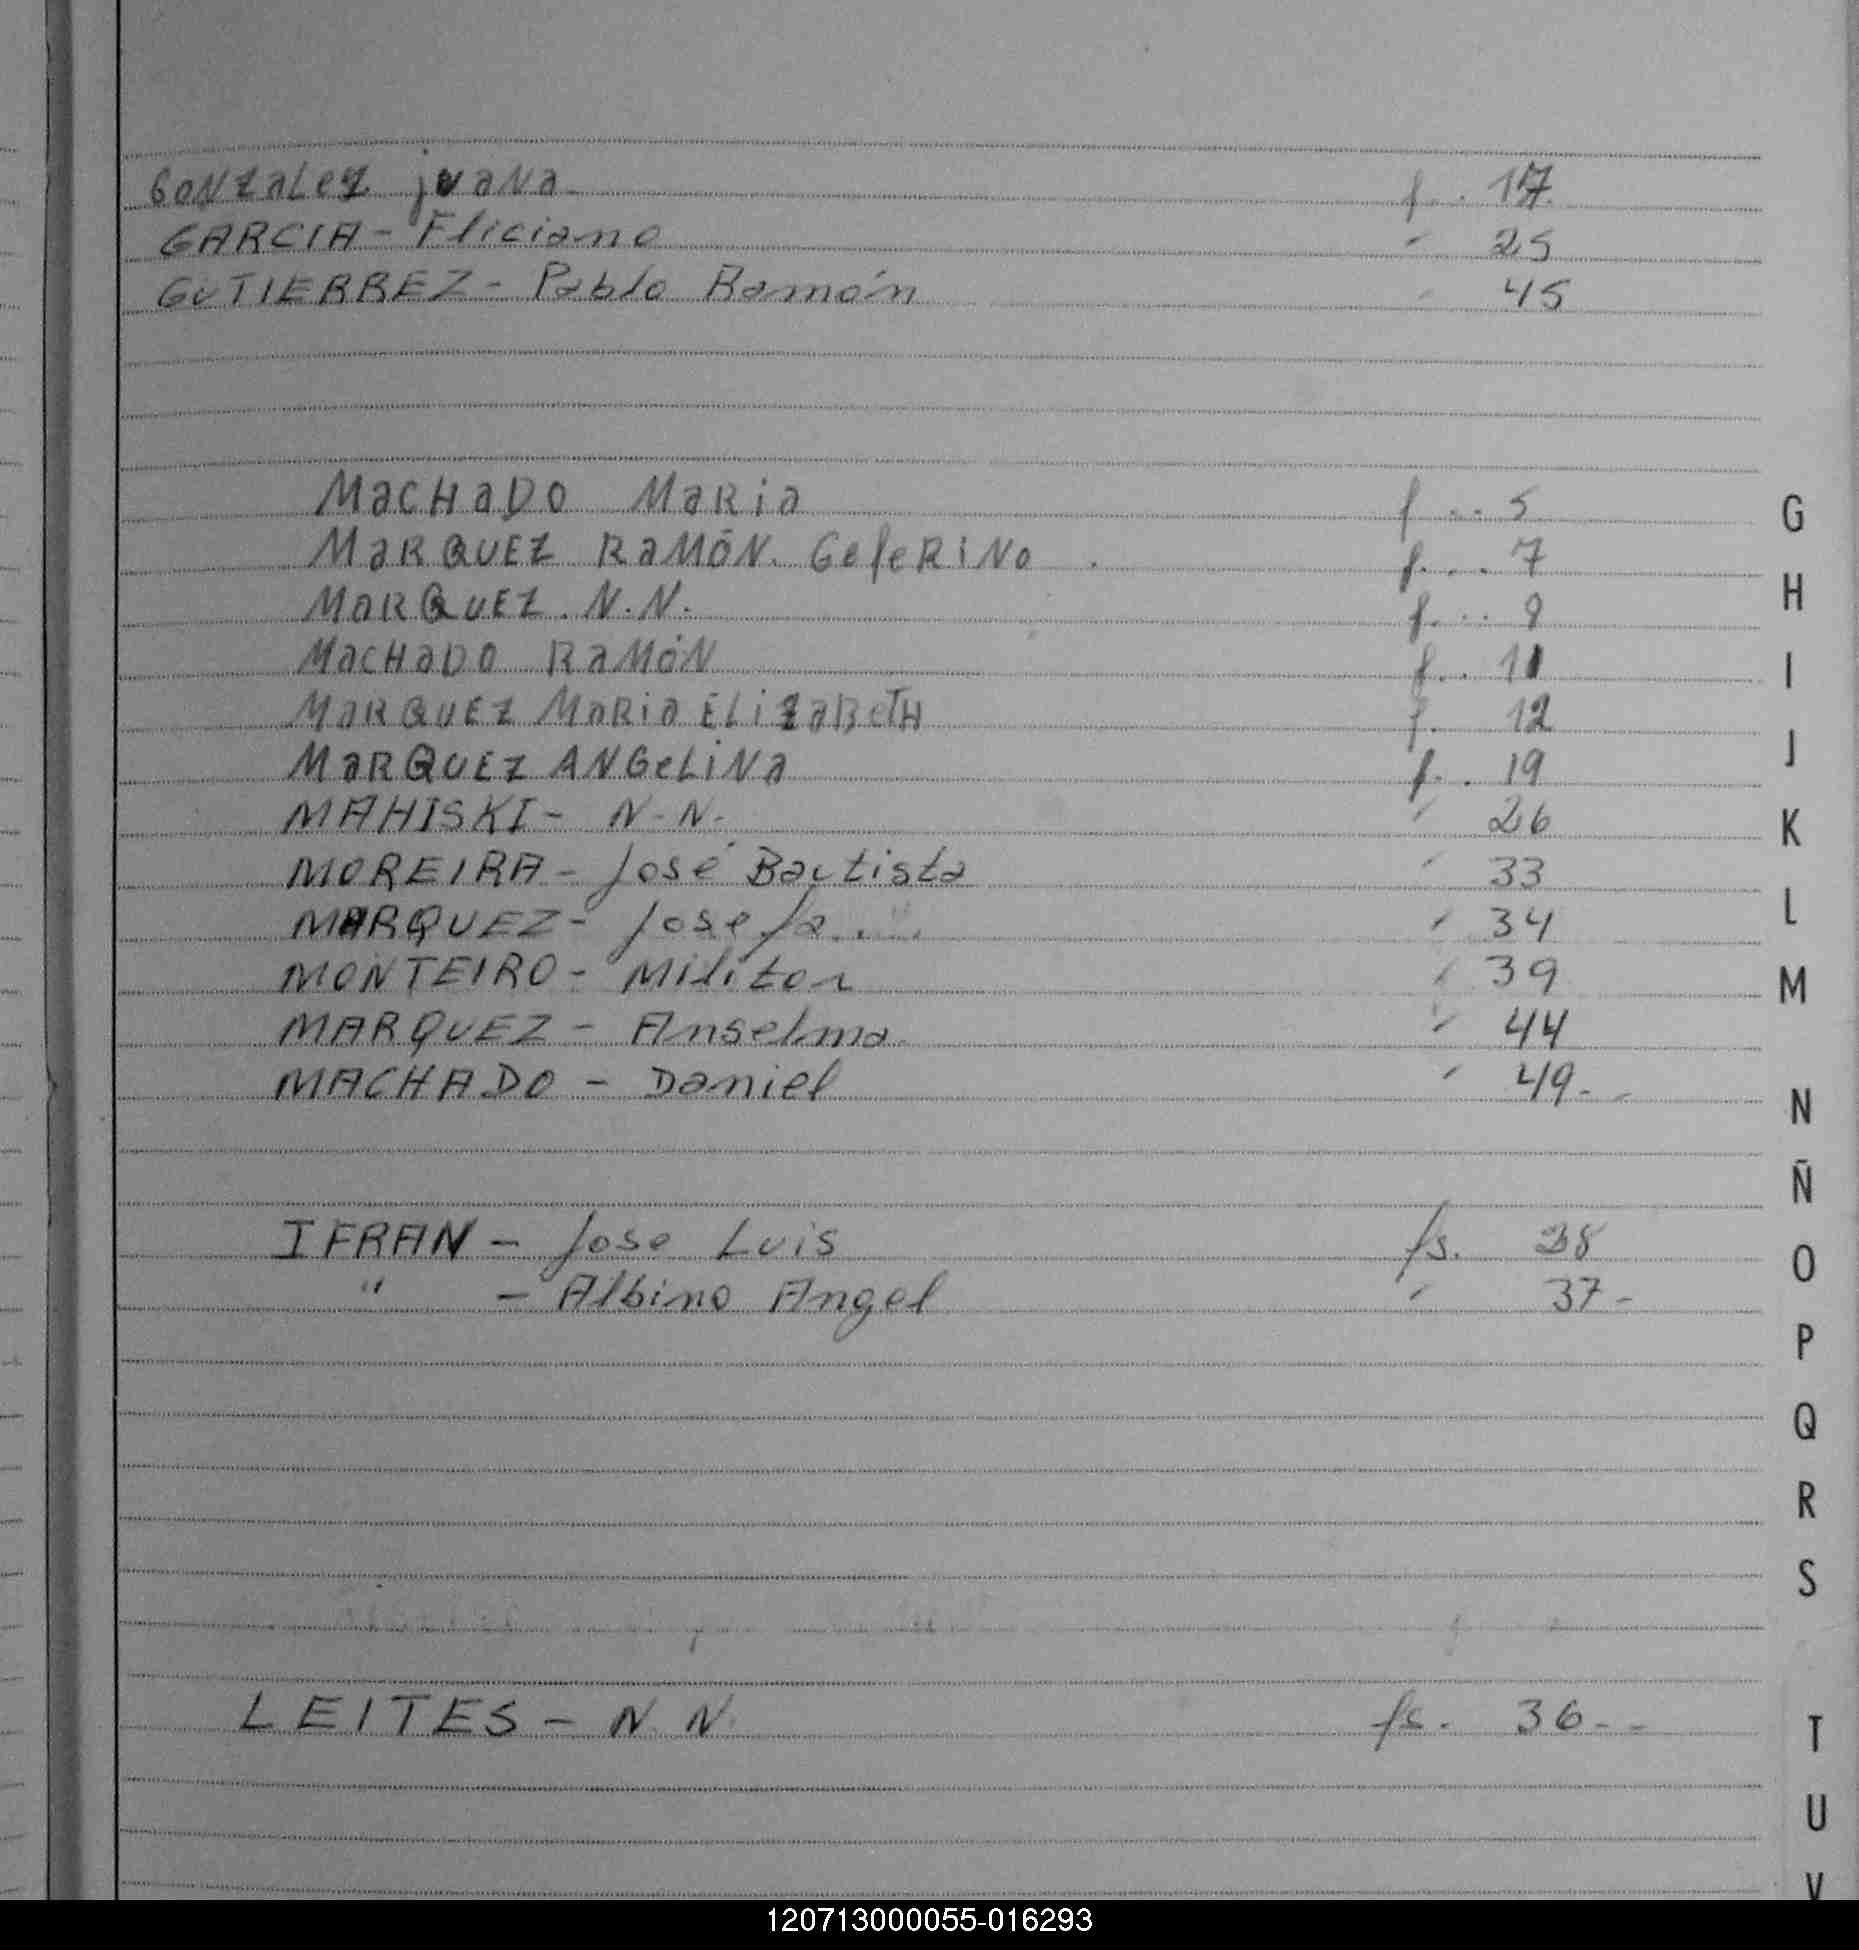 GONZALEZ juANA f. . 17
GARCIA - Fliciano " 25
GUTIERREZ - Pablo Ramón " 45
MACHADO MARIA f ... 5
MARQUEZ RAMÓN CEFERINO . f. ... 7
MARQUEZ N.N. f. ... 9
MACHADO RAMÓN f. .. 11
MARQUEZ MARIA ELIZABETH f. 12
MARQUEZ ANGELINA f. . 19
MAHISKI - N.N. " 26
MOREIRA - José Bautista " 33
MARQUEZ - Josefa " 34
MONTEIRO - Militon " 39
MARQUEZ - Anselma " 44
MACHADO - Daniel " 49 - -
IFRAN - Jose Luis fs. 28
" - Albino Angel " 37 -
LEITES - N.N. fs. 36 - -
G
H
I
J
K
L
M
N
Ñ
O
P
Q
R
S
T
U
V
120713000055-016293